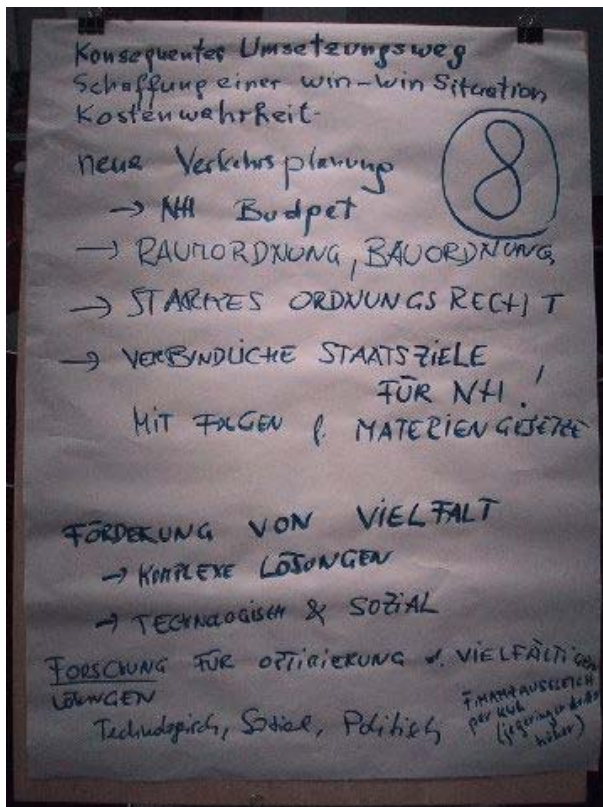 Konsequenter Umsetzungsweg
Schaffung einer win-win Situation
Kostenwahrheit
8
neue Verkehrsplanung
→ NH Budget
→ RAUMORDNUNG, BAUORDNUNG
→ STARKES ORDNUNGSRECHT
→ VERBINDLICHE STAATSZIELE
FÜR NH!
MIT FOLGEN f. MATERIENGESETZE
FÖRDERUNG VON VIELFALT
→ KOMPLEXE LÖSUNGEN
→ TECHNOLOGISCH & SOZIAL
FORSCHUNG FÜR OPTIMIERUNG VIELFÄLTIGEN
LÖSUNGEN
Technologisch, Sozial, Politisch
FINANZAUSGLEICH
per kWh
(je geringer desto
höher)